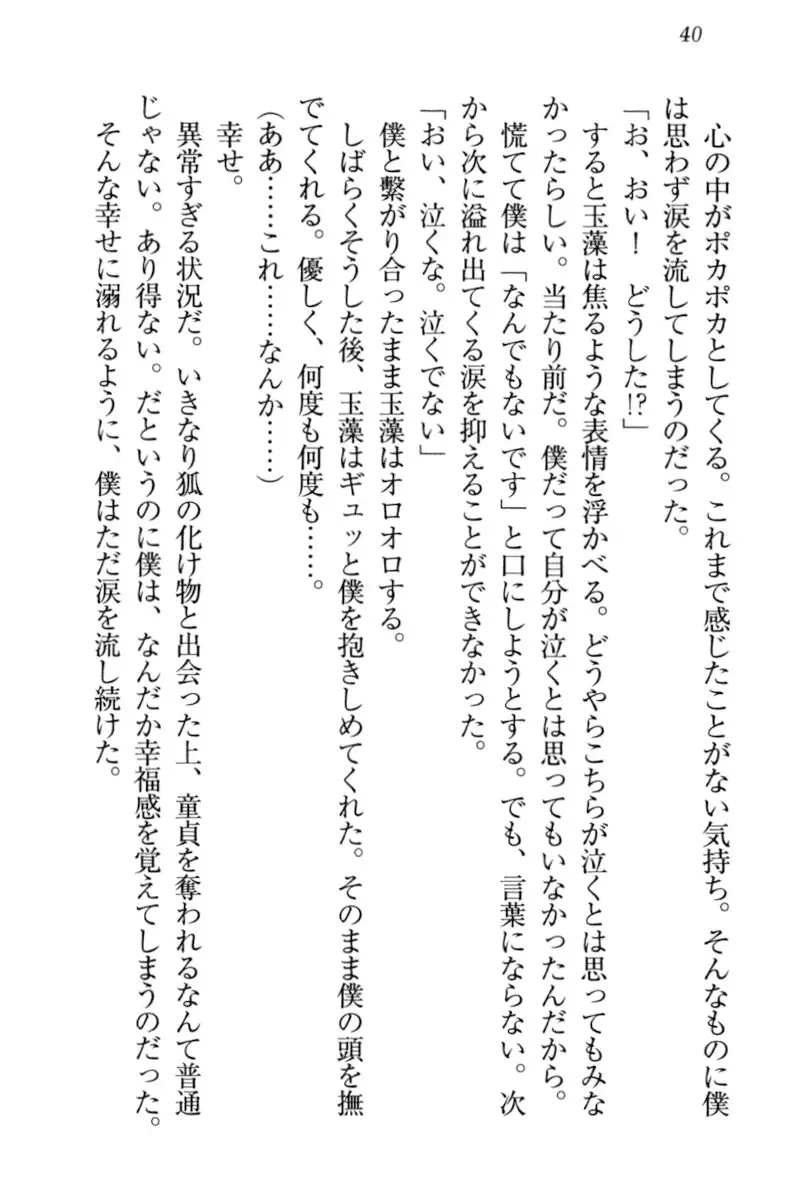 40
心の中がポカポカとしてくる。これまで感じたことがない気持ち。そんなものに僕
は思わず涙を流してしまうのだった。
「お、おい！　どうした!?」
すると玉藻は焦るような表情を浮かべる。どうやらこちらが泣くとは思ってもみな
かったらしい。当たり前だ。僕だって自分が泣くとは思ってもいなかったんだから。
慌てて僕は「なんでもないです」と口にしようとする。でも、言葉にならない。次
から次に溢れ出てくる涙を抑えることができなかった。
「おい、泣くな。泣くでない」
僕と繋がり合ったまま玉藻はオロオロする。
しばらくそうした後、玉藻はギュッと僕を抱きしめてくれた。そのまま僕の頭を撫
でてくれる。優しく、何度も何度も……。
（ああ……これ……なんか……）
幸せ。
異常すぎる状況だ。いきなり狐の化け物と出会った上、童貞を奪われるなんて普通
じゃない。あり得ない。だというのに僕は、なんだか幸福感を覚えてしまうのだった。
そんな幸せに溺れるように、僕はただ涙を流し続けた。